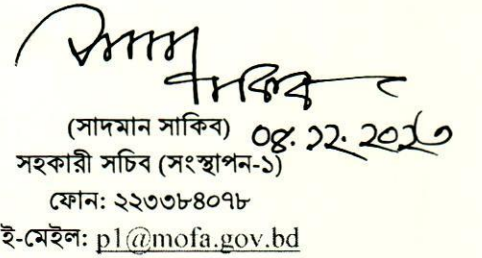 সাদমান
সাকিব
(সাদমান সাকিব) ০৪.১২.২০২৩
সহকারী সচিব (সংস্থাপন-১)
ফোন: ২২৩৩৮৪০৭৮
ই-মেইল: p1@mofa.gov.bd